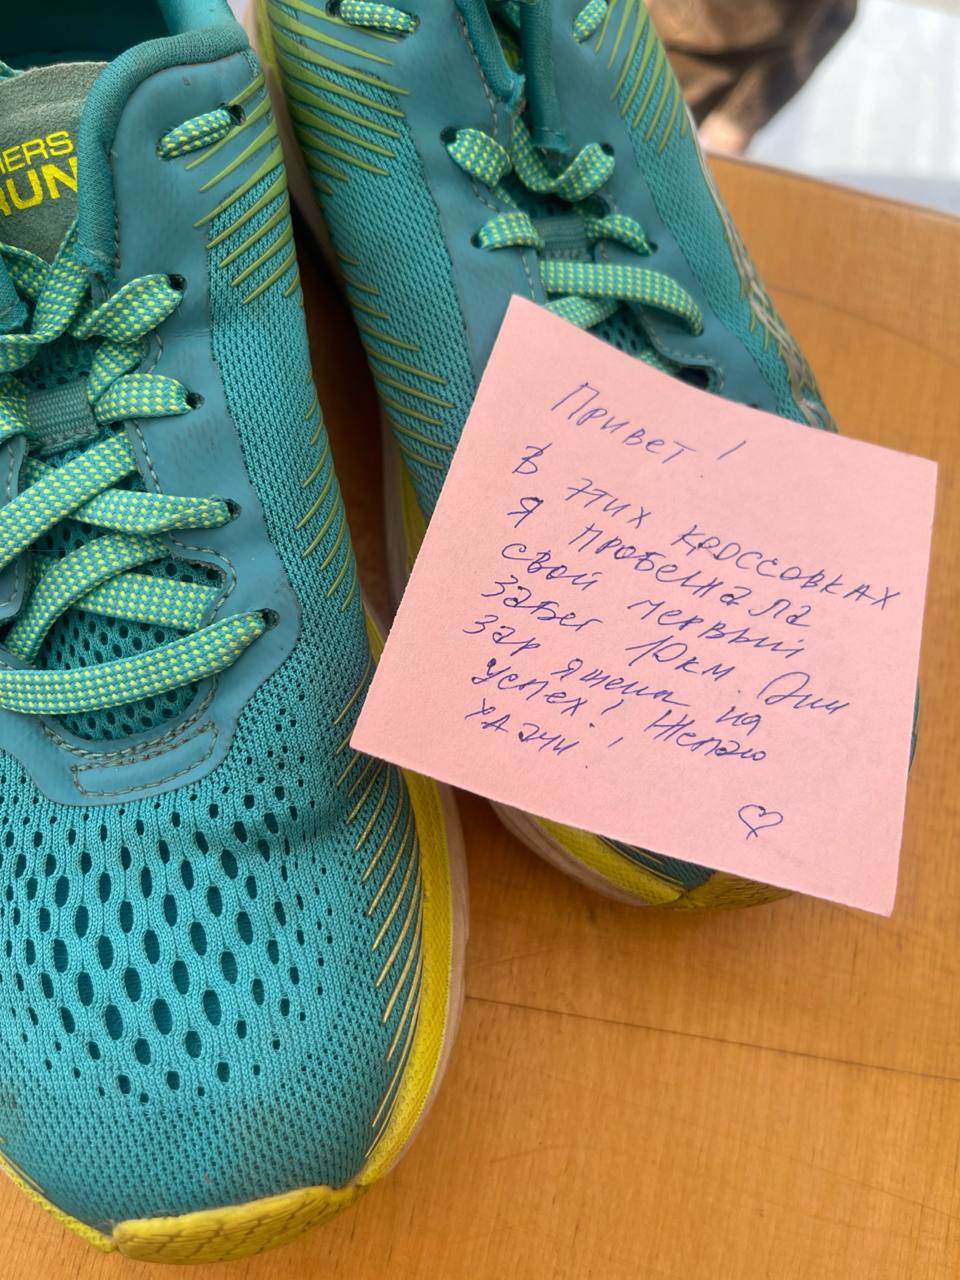 HERS
RUN
Привет!
В этих кроссовках
я пробежала
свой первый
забег 10км. Они
заряжены на
успех! Желаю
удачи!